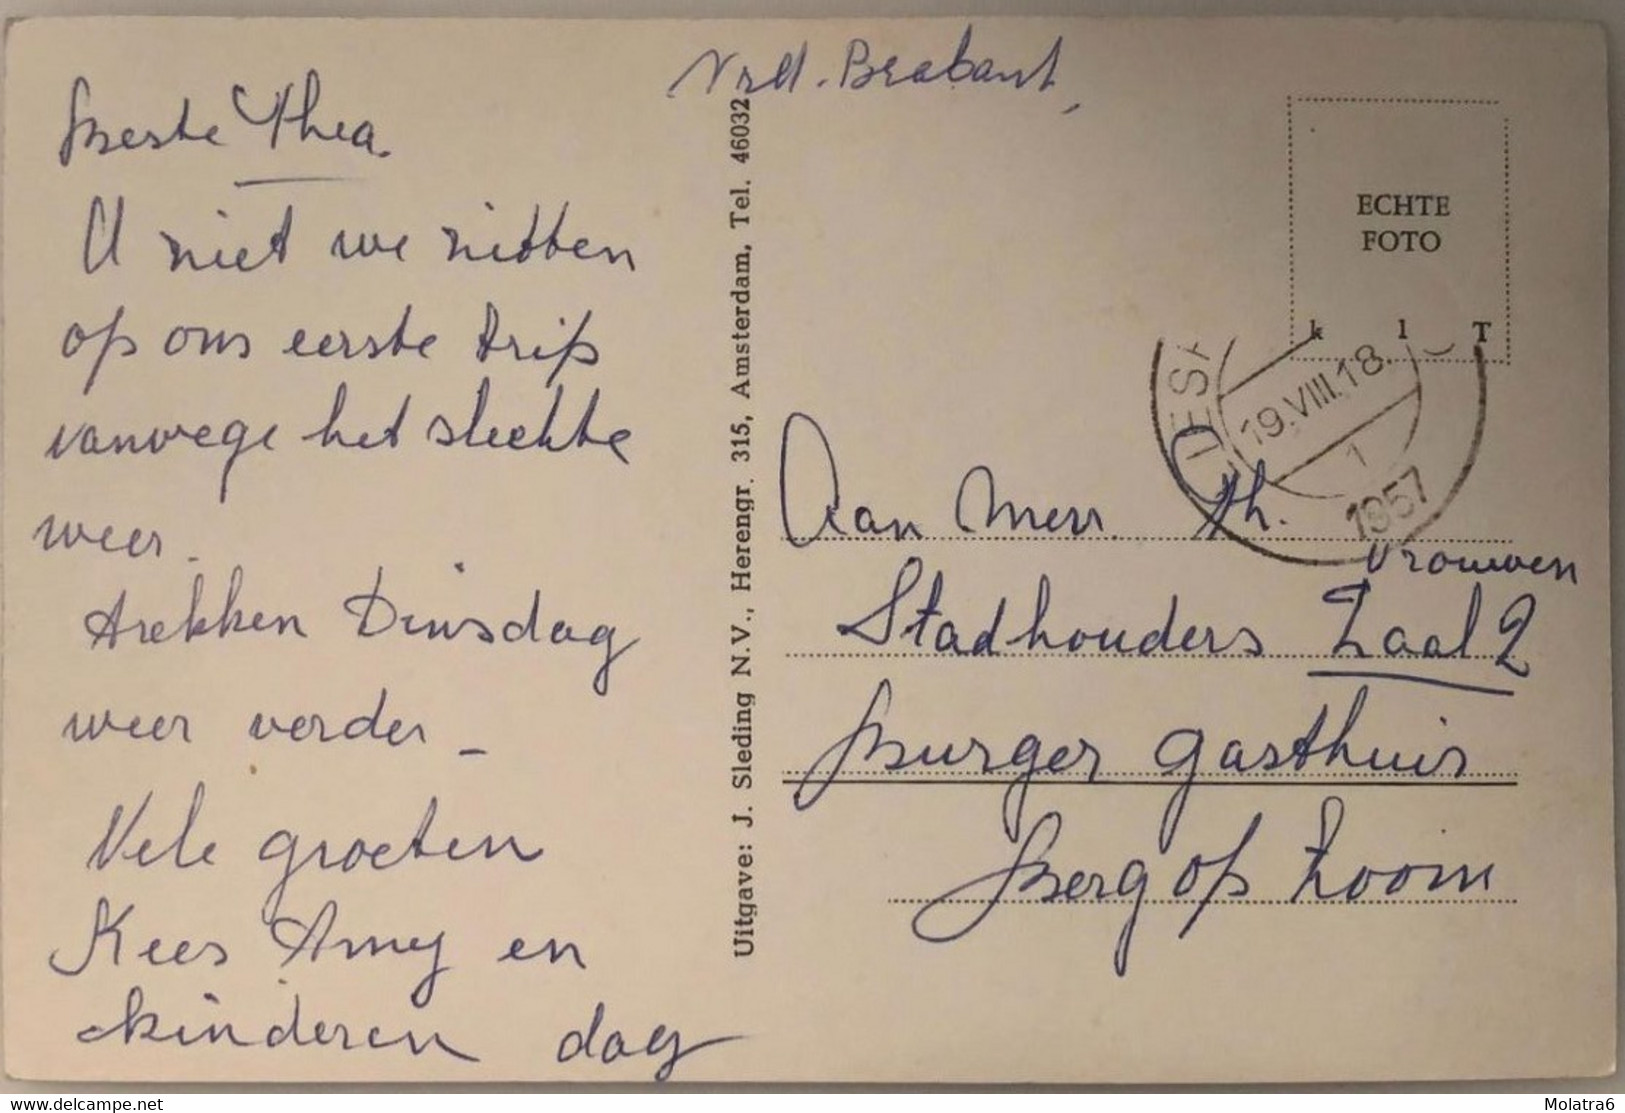 Beste Thea.
U niet we zitten
op ons eerste trip
vanwege het slechte
weer.
trekken Dinsdag
weer verder -
Vele groeten
Kees Amy en
kinderen dag
Uitgave: J. Sleding N.V., Herengr. 315, Amsterdam, Tel. 46032
Nrd. Brabant,
ECHTE
FOTO
k l T
19.VIII.18
1
1957
Aan Mevr. Th.
vrouwen
Stadhouders Zaal 2
Burger Gasthuis
Berg op Zoom
Molatra6